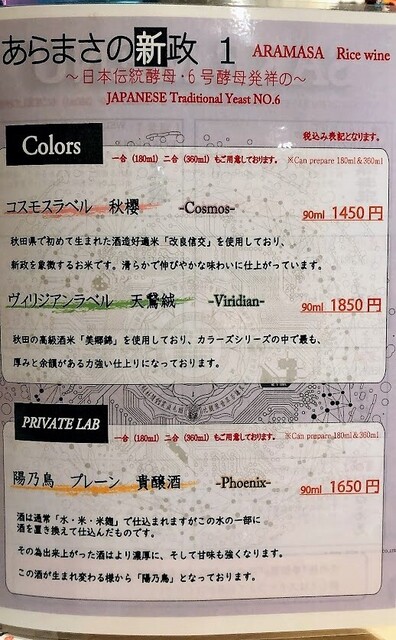 あらまさの新政 1 ARAMASA Rice wine
～日本伝統酵母・6号酵母発祥の～
JAPANESE Traditional Yeast NO.6
税込み表記となります。
Colors
一合（180ml）二合（360ml）もご用意しております。 ※Can prepare 180ml＆360ml
コスモスラベル 秋櫻 -Cosmos- 90ml 1450円
秋田県で初めて生まれた酒造好適米「改良信交」を使用しており、
新政を象徴するお米です。滑らかで伸びやかな味わいに仕上がっています。
ヴィリジアンラベル 天鵞絨 -Viridian- 90ml 1850円
秋田の高級酒米「美郷錦」を使用しており、カラーズシリーズの中で最も、
厚みと余韻がある力強い仕上りになっております。
PRIVATE LAB
一合（180ml）二合（360ml）もご用意しております。 ※Can prepare 180ml＆360ml
陽乃鳥 プレーン 貴醸酒 -Phoenix- 90ml 1650円
酒は通常「水・米・米麹」で仕込まれますがこの水の一部に
酒を置き換えて仕込んだものです。
その為出来上がった酒はより濃厚に、そして甘味も強くなります。
この酒が生まれ変わる様から「陽乃鳥」となっております。